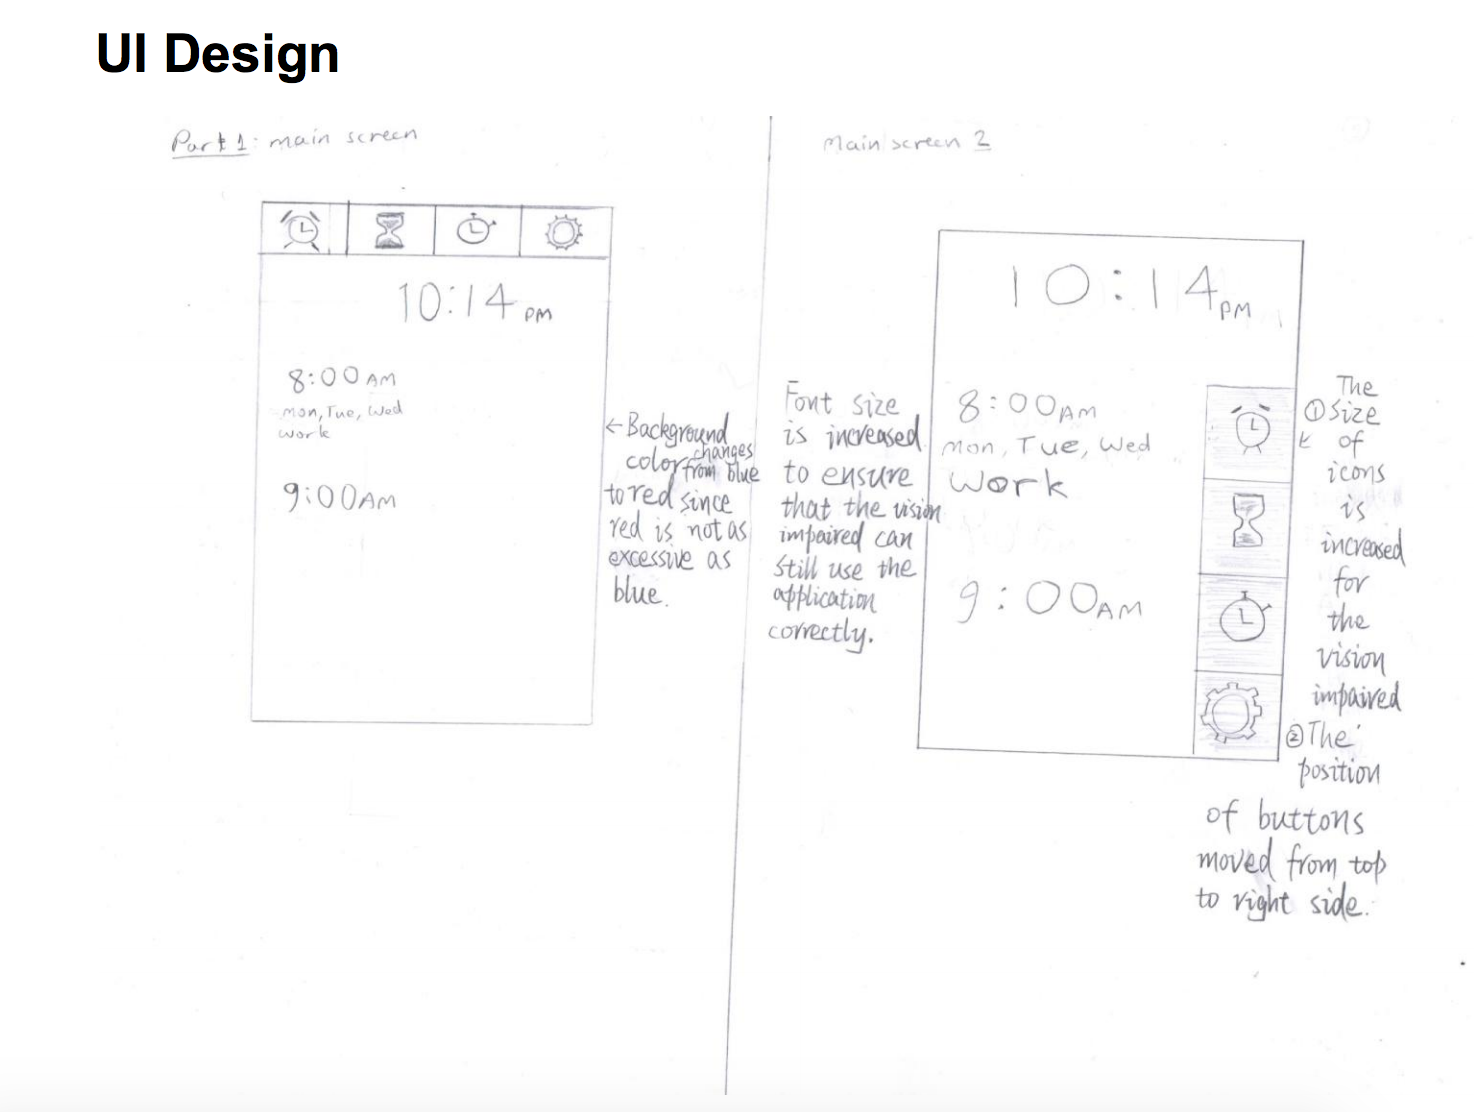 UI Design
Part 1: main screen
10:14 PM
8:00 AM
Mon, Tue, Wed
work
9:00AM
←Background
color changes
from blue
to red since
red is not as
excessive as
blue.
Main screen 2
10:14 PM
8:00AM
Mon, Tue, Wed
Work
9:00AM
Font size
is increased
to ensure
that the vision
impaired can
still use the
application
correctly.
The
①size
of
icons
is
increased
for
the
vision
impaired
②The
position
of buttons
moved from top
to right side.